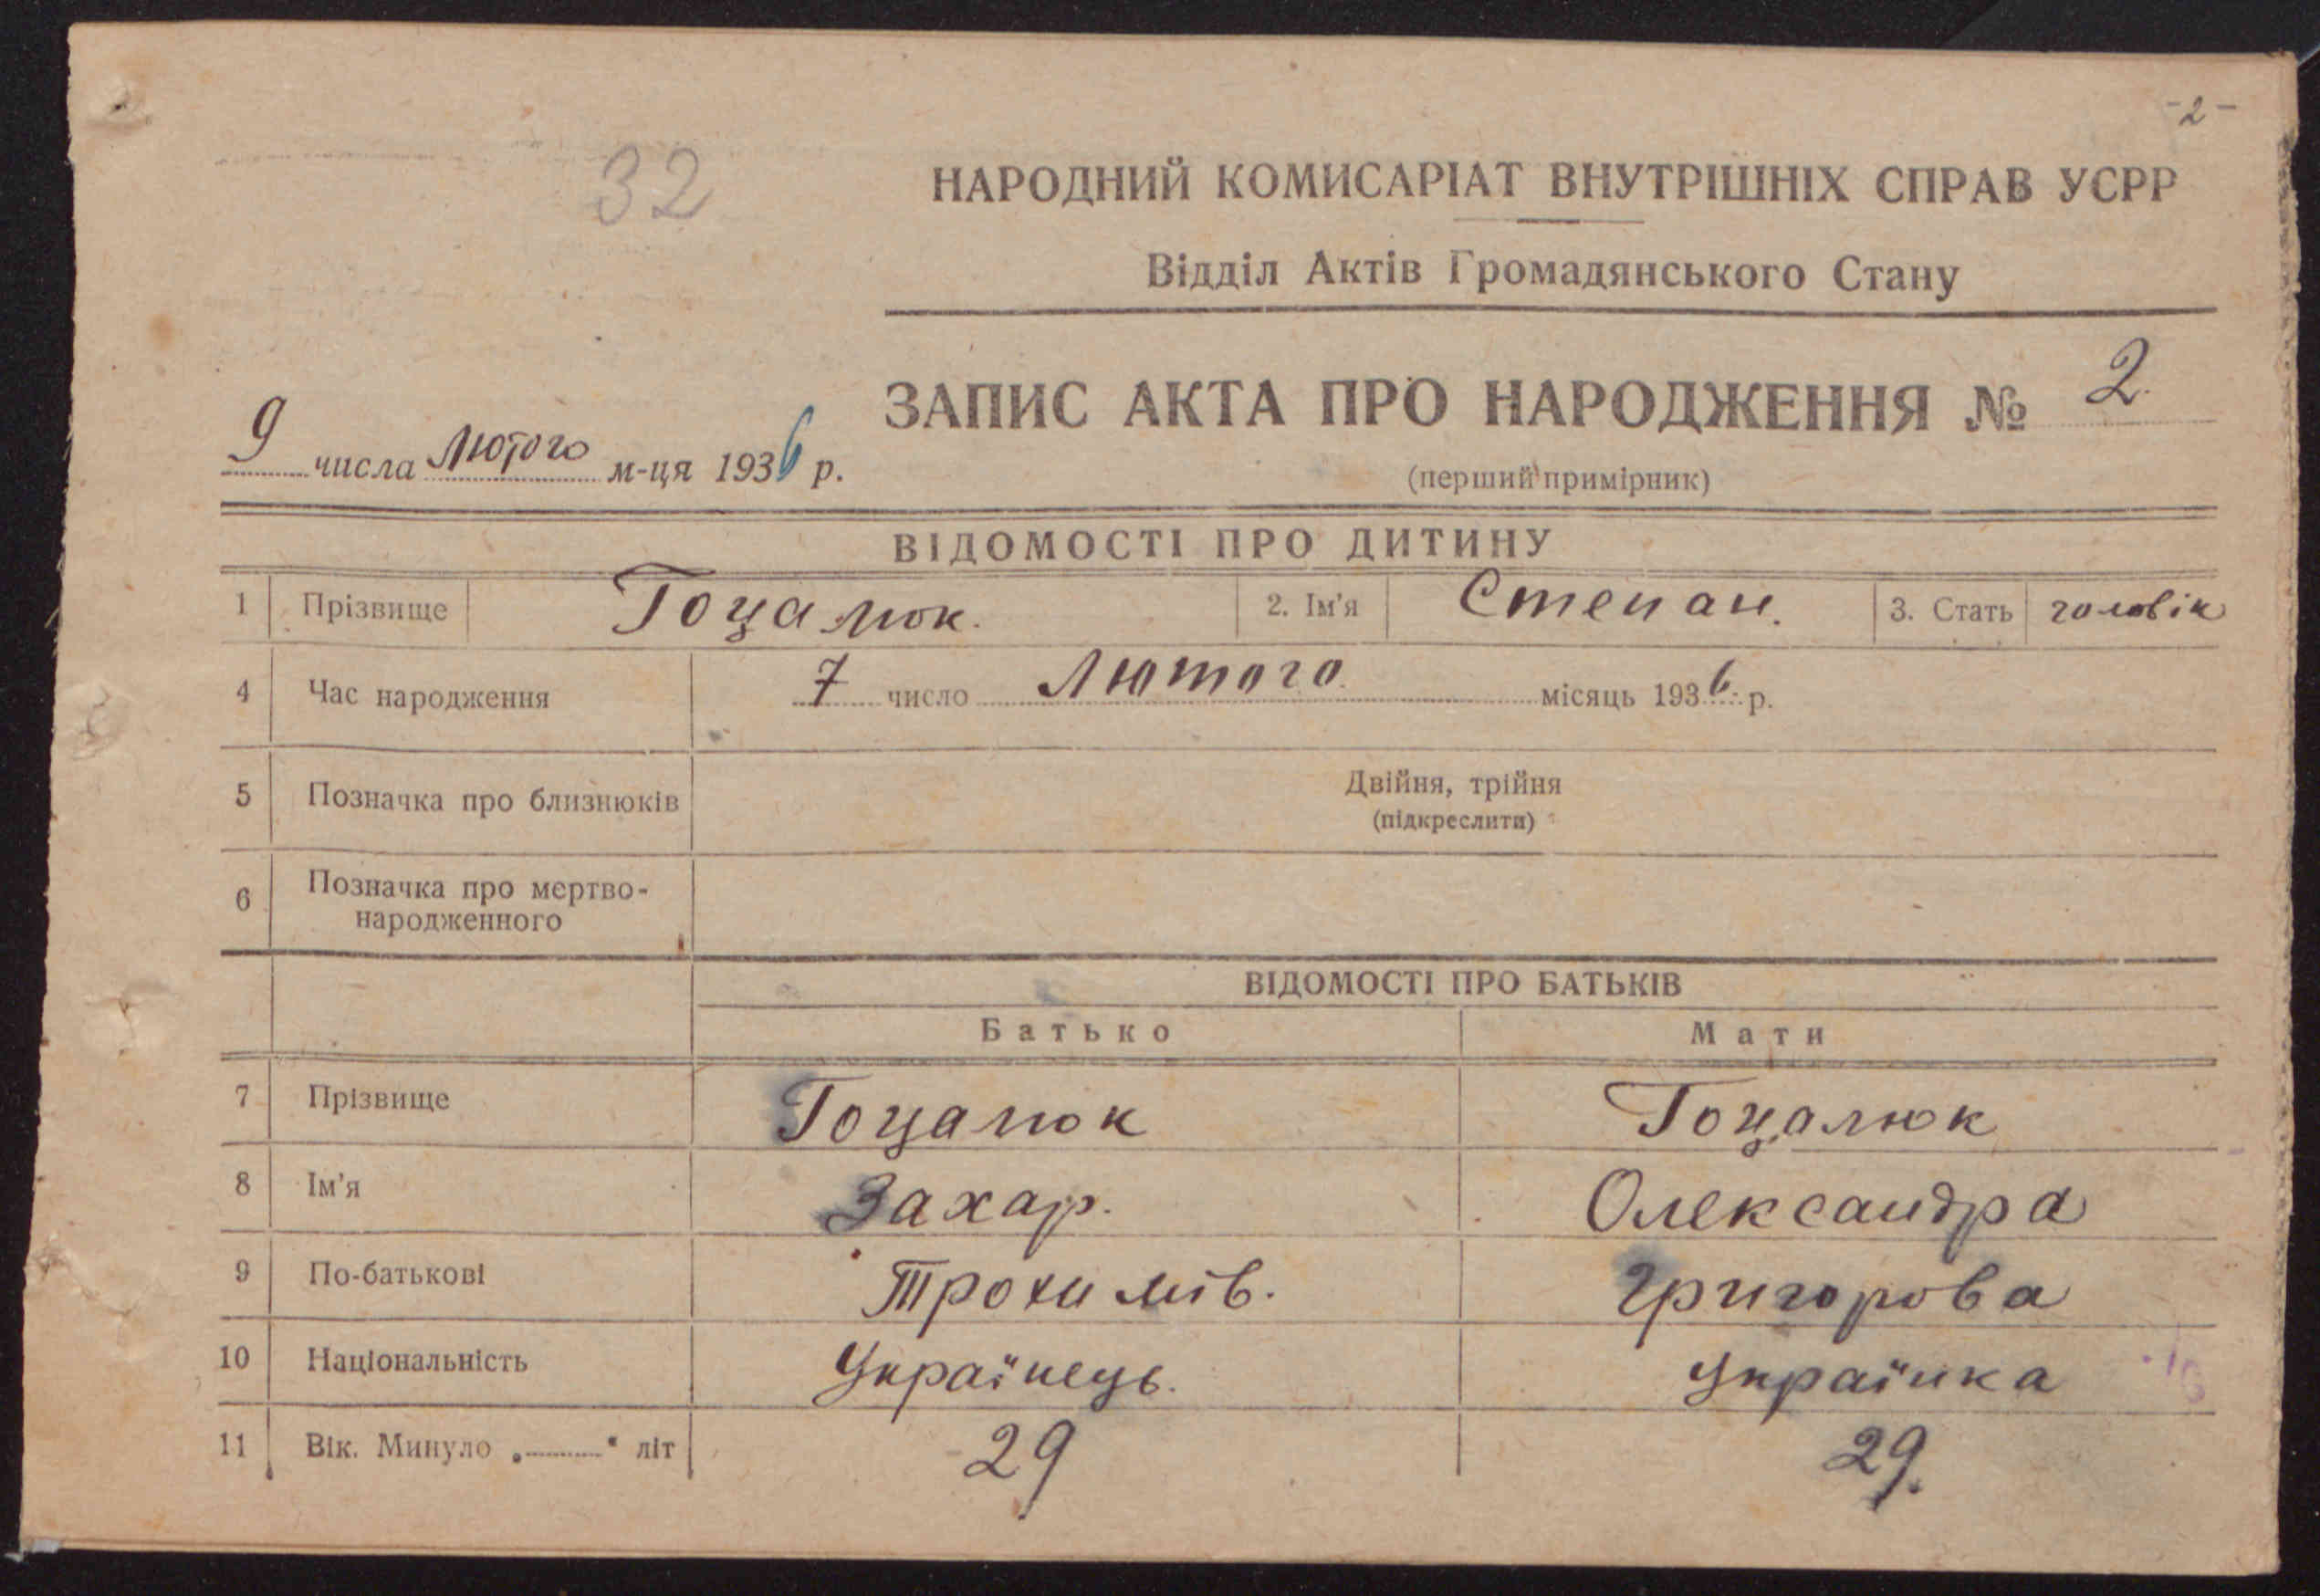 -2-
32
НАРОДНИЙ КОМИСАРІАТ ВНУТРІШНІХ СПРАВ УСРР
Відділ Актів Громадянського Стану
ЗАПИС АКТА ПРО НАРОДЖЕННЯ № 2
9 числа Лютого м-ця 1936 р.
(перший примірник)
ВІДОМОСТІ ПРО ДИТИНУ
1 Прізвище Гоцалюк. 2. Ім'я Степан. 3. Стать чоловік
4 Час народження 7 число Лютого місяць 1936 р.
5 Позначка про близнюків Двійня, трійня
(підкреслити)
6 Позначка про мертво-
народженного
ВІДОМОСТІ ПРО БАТЬКІВ
Батько Мати
7 Прізвище Гоцалюк Гоцалюк
8 Ім'я Захар. Олександра
9 По-батькові Трохимів. Григорова
10 Національність Українець. Українка
11 Вік. Минуло „ “ літ 29 29.